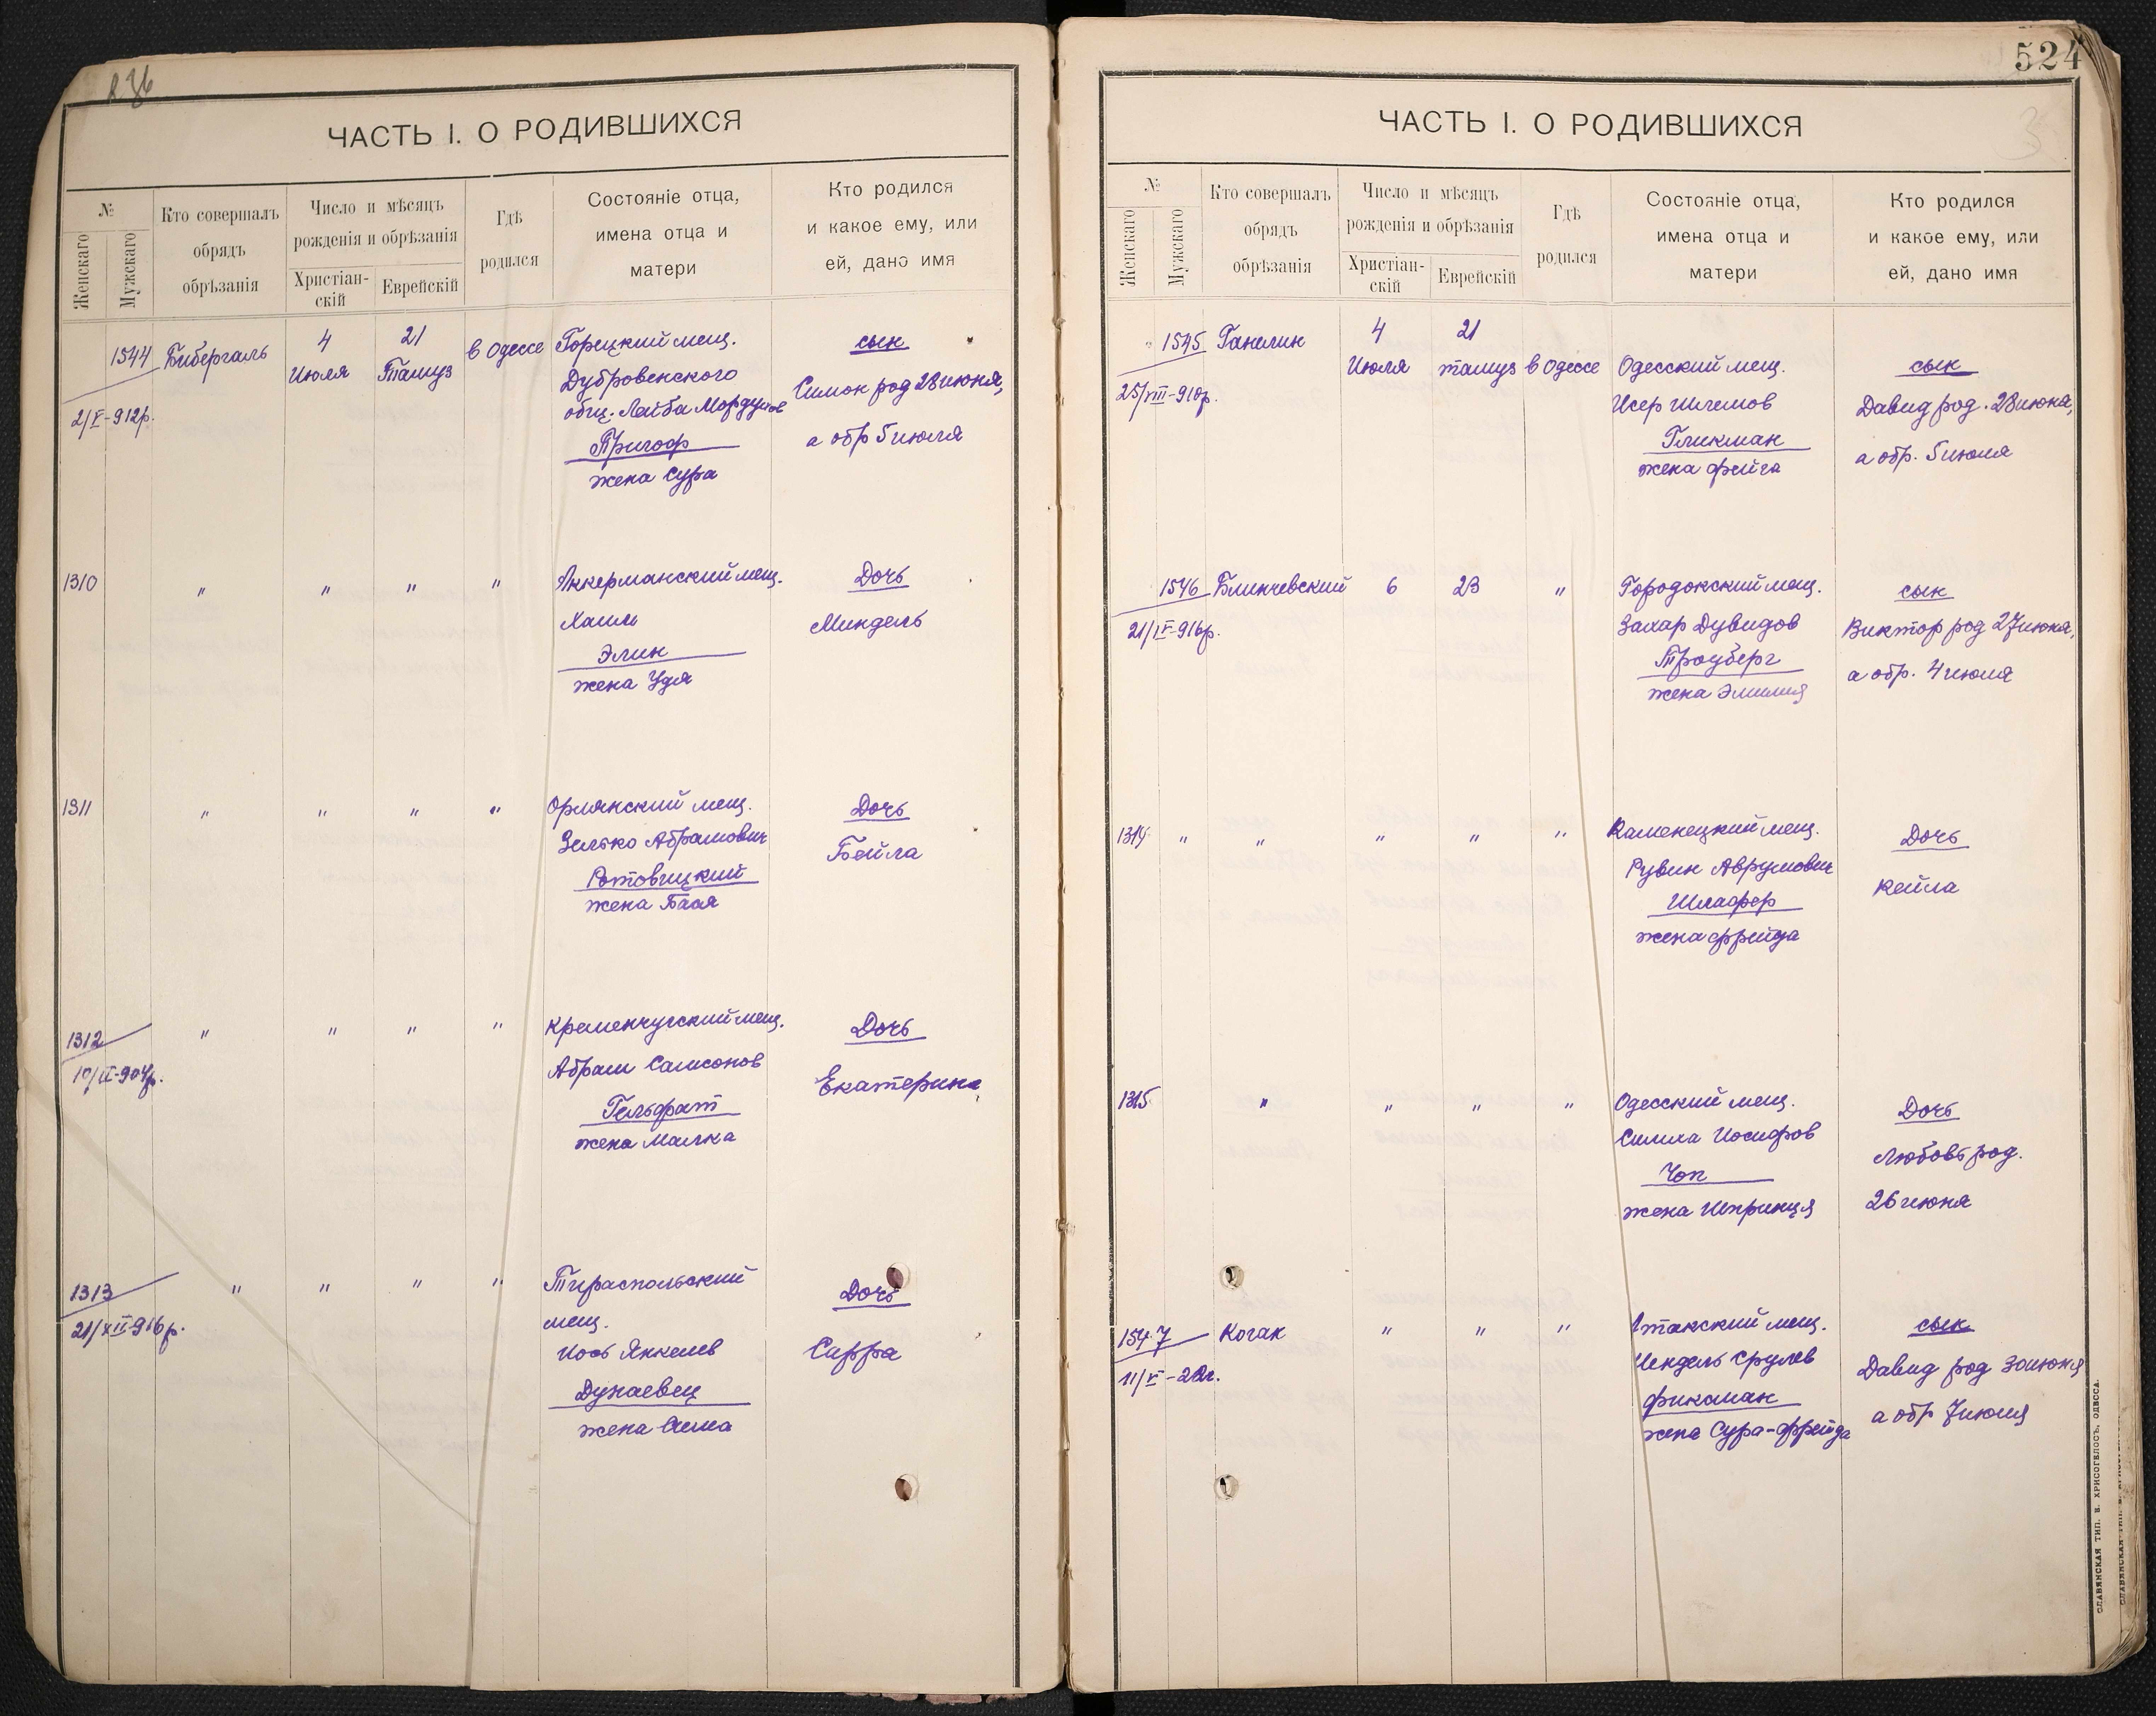 ЧАСТЬ I. О РОДИВШИХСЯ
№
Женскаго
Мужскаго
Кто совершалъ
обрядъ
обрѣзанія
Число и мѣсяцъ
рожденія и обрѣзанія
Христіан-
скій
Еврейскій
Гдѣ
родился
Состояніе отца,
имена отца и
матери
Кто родился
и какое ему, или
ей, дано имя
1544
2/V-912р.
Бибергаль
4
Июля
21
Тамуз
в Одессе
Горецкий мещ.
Дубровенского
общ. Лейба Мордухов
Пригоф
жена Сура
сын
Симон род 28 июня,
а обр 5 июля
1310
" " " "
Аккерманский мещ.
Хаим
Элин
жена Удя
Дочь
Миндель
1311
" " " "
Орлянский мещ.
Зелько Абрамович
Ротовицкий
жена Бася
Дочь
Бейла
1312
" " " "
Кременчугский мещ.
Абрам Самсонов
Гельфат
жена Малка
Дочь
Екатерина
1313
21/XII-916р.
" " " "
Тираспольский
мещ.
Иось Янкелев
Дунаевец
жена Сима
Дочь
Сарра
524
ЧАСТЬ I. О РОДИВШИХСЯ
№
Женскаго
Мужскаго
Кто совершалъ
обрядъ
обрѣзанія
Число и мѣсяцъ
рожденія и обрѣзанія
Христіан-
скій
Еврейскій
Гдѣ
родился
Состояніе отца,
имена отца и
матери
Кто родился
и какое ему, или
ей, дано имя
1545
25/VIII-910р.
Ганелин
4
Июля
21
тамуз
в Одессе
Одесский мещ.
Исер Шлемов
Гликман
жена Фейга
сын
Давид род. 28 июня,
а обр. 5 июля
1546
21/IV-916р.
Блинчевский
6
23
"
Городокский мещ.
Захар Дувидов
Трауберг
жена Эмилия
сын
Виктор род 27 июня,
а обр. 4 июля
1314
" " " " "
Каменецкий мещ.
Рувин Аврумович
Шлафер
жена Фрейда
Дочь
Кейла
1315
" " " "
Одесский мещ.
Симха Иосифов
Чоп
жена Шпринця
Дочь
Любовь род.
26 июня
1547
Коган
" " "
Атакский мещ.
Мендель Срулев
Фиксман
жена Сура-Фрейда
сын
Давид род 30 июня
а обр 7 июля
СЛАВЯНСКАЯ ТИП. Н. ХРИСОГЕЛОСЪ, ОДЕССА.